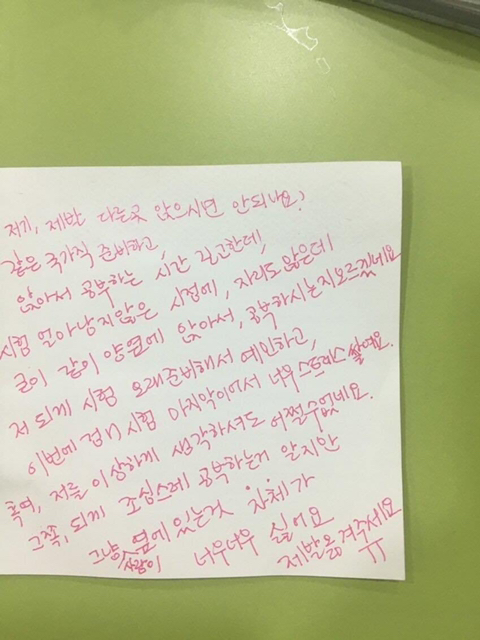 저기, 제발 다른곳 앉으시면 안되나요?
같은 국가직 준비하고,
앉아서 공부하는 시간 길고한데,
시험 얼마남지않은 시점에, 자리도많은데
굳이 같이 양옆에 앉아서, 공부하시는지모르겠네요
저 되게 시험 오래준비해서 예민하고,
이번에 시험 마지막이어서 너무 스트레스 쌓여요.
혹여, 저를 이상하게 생각하셔도 어쩔수없네요.
그쪽, 되게 조심스레 공부하는거 알지만
그냥 옆에 사람이 있는것 자체가
너무너무 싫어요
제발옮겨주세요
ㅠ